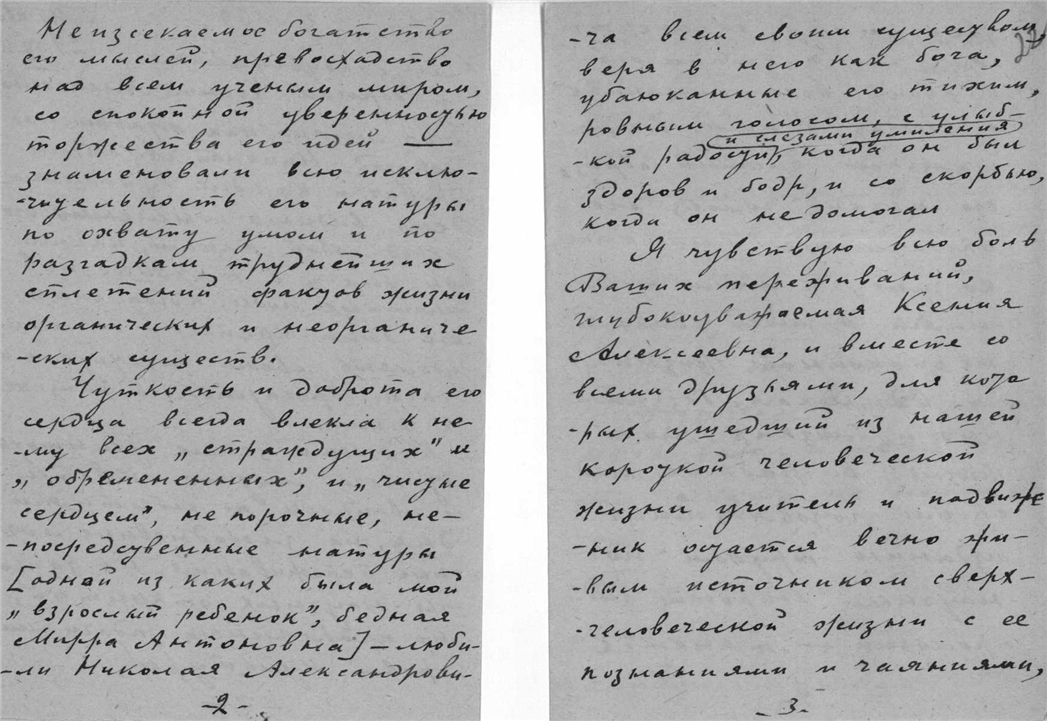 Неизсекаемое богатство
его мыслей, превосходство
над всем ученым миром,
со спокойной уверенностью
торжества его идей —
знаменовали всю исклю-
-чительность его натуры
по охвату умом и по
разгадкам труднейших
сплетений фактов жизни
органических и неорганиче-
-ских существ.
Чуткость и доброта его
сердца всегда влекла к не-
-му всех „страждущих" и
„обремененных", и „чистые
сердцем", не порочные, не-
-посредственные натуры
[одной из каких была мой
„взрослый ребенок", бедная
Мирра Антоновна] — люби-
-ли Николая Александрови-
-2-
27
-ча всем своим существом,
веря в него как бога,
убаюканные его тихим,
ровным голосом, с улыб-
и слезами умиления
-кой радости, когда он был
здоров и бодр, и со скорбью,
когда он недомогал
Я чувствую всю боль
Ваших переживаний,
глубокоуважаемая Ксения
Алексеевна, и вместе со
всеми друзьями, для кото
-рых ушедший из нашей
короткой человеческой
жизни учитель и подвиж
-ник остается вечно жи-
-вым источником сверх-
-человеческой жизни с ее
познаниями и чаяниями,
-3-